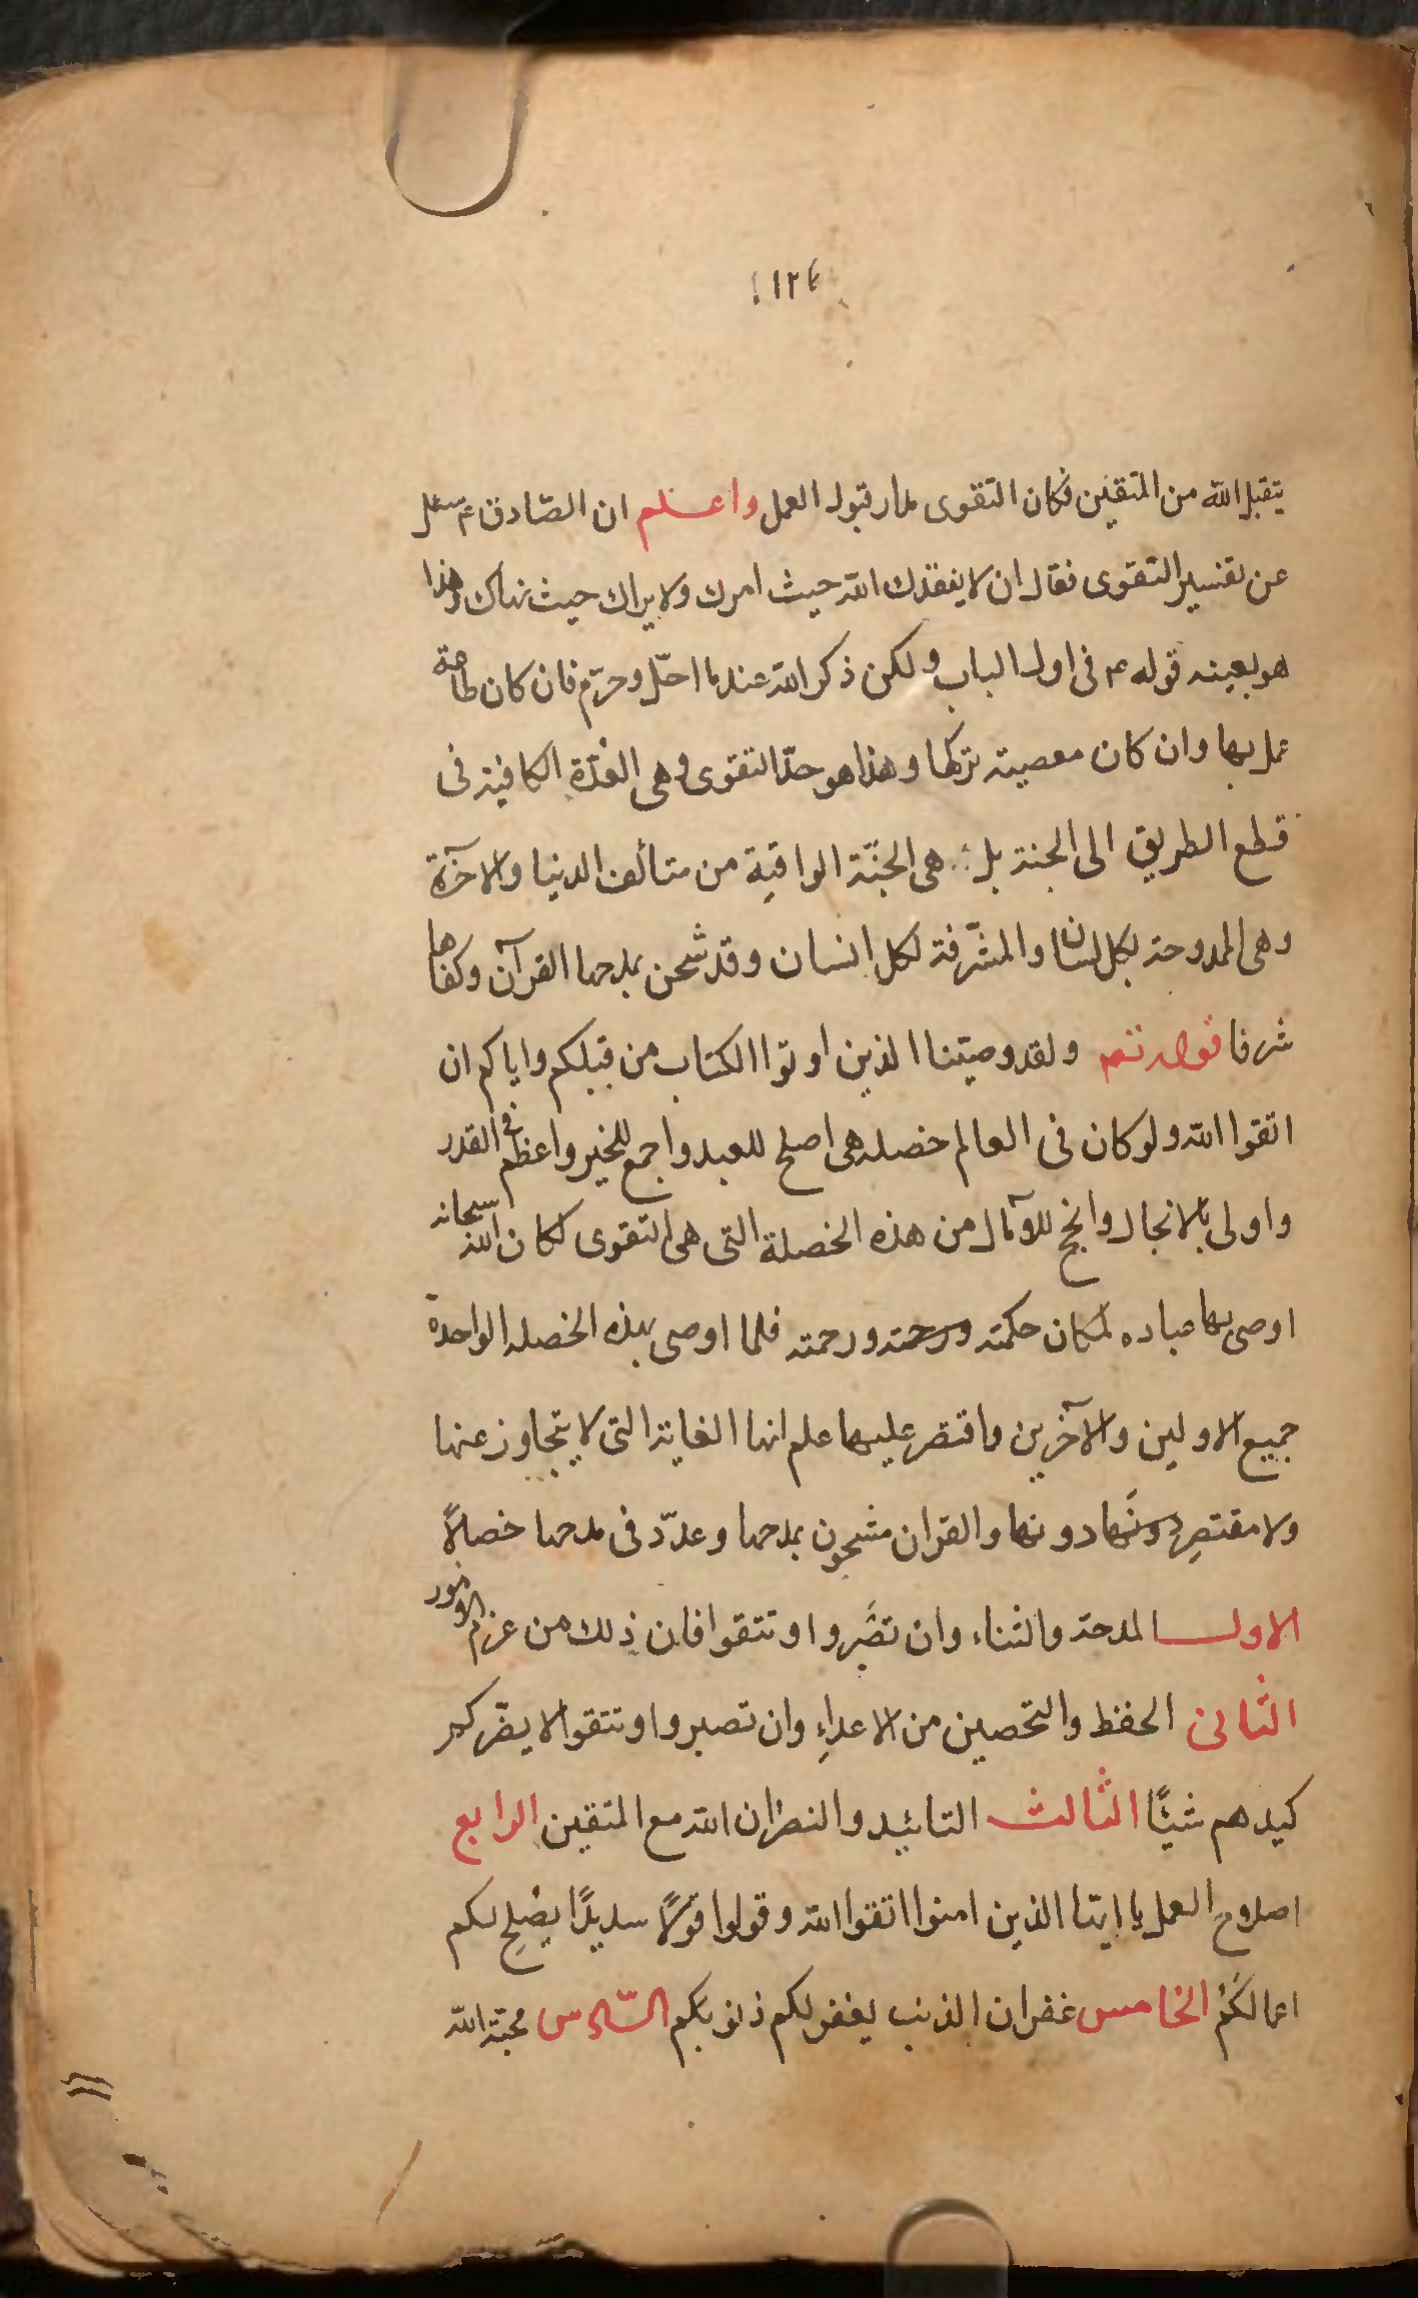 يتقبل الله من المتقين فكان التقوى مدار قبول العمل واعلم ان الصّادق ع سئل
عن تفسير التقوى فقال ان لا يفقدك الله حيث امرك ولا يراك حيث نهاك وهذا
هو بعينه قوله ع فى اول الباب ولكن ذكر الله عندما احلّ وحرّم فان كان طاعة
عمل بها وان كان معصية تركها وهذا هو حدّ التقوى وهى العدّة الكافية فى
قطع الطريق الى الجنة بل هى الجنّة الواقية من متألف الدنيا والآخرة
وهى الممدوحة بكل لسان والمشرّفة لكل انسان وقد شحن بمدحها القرآن وكفاها
شرفا قوله تعم ولقد وصيّنا الذين اوتوا الكتاب من قبلكم واياكم ان
اتقوا الله ولو كان فى العالم خصله هى اصلح للعبد واجمع للخير واعظم فى القدر
واولى بالانجال وانجح للآمال من هذه الخصلة التى هى التقوى لكان الله سبحانه
اوصى بها عباده لمكان حكمته ورحمته ورحمته فلما اوصى بهذه الخصله الواحدة
جميع الاولين والآخرين واقتصر عليها علم انها الغاية التى لا يتجاوز عنها
ولا مقتصر دونها دونها والقران مشحون بمدحها وعدّد فى مدحها خصالًا
الاول المدحة والثناء وان تصبروا وتتقوا فان ذلك من عزم الامور
الثانى الحفظ والتحصين من الاعداء وان تصبروا وتتقوا لا يضّركم
كيدهم شيئًا الثالث التائيد والنصر ان الله مع المتقين الرابع
اصلاح العمل يا ايها الذين امنوا اتقوا الله وقولوا قولًا سديدًا يصلح لكم
اعمالكم الخامس غفران الذنب يغفر لكم ذنوبكم السّادس محبّة الله